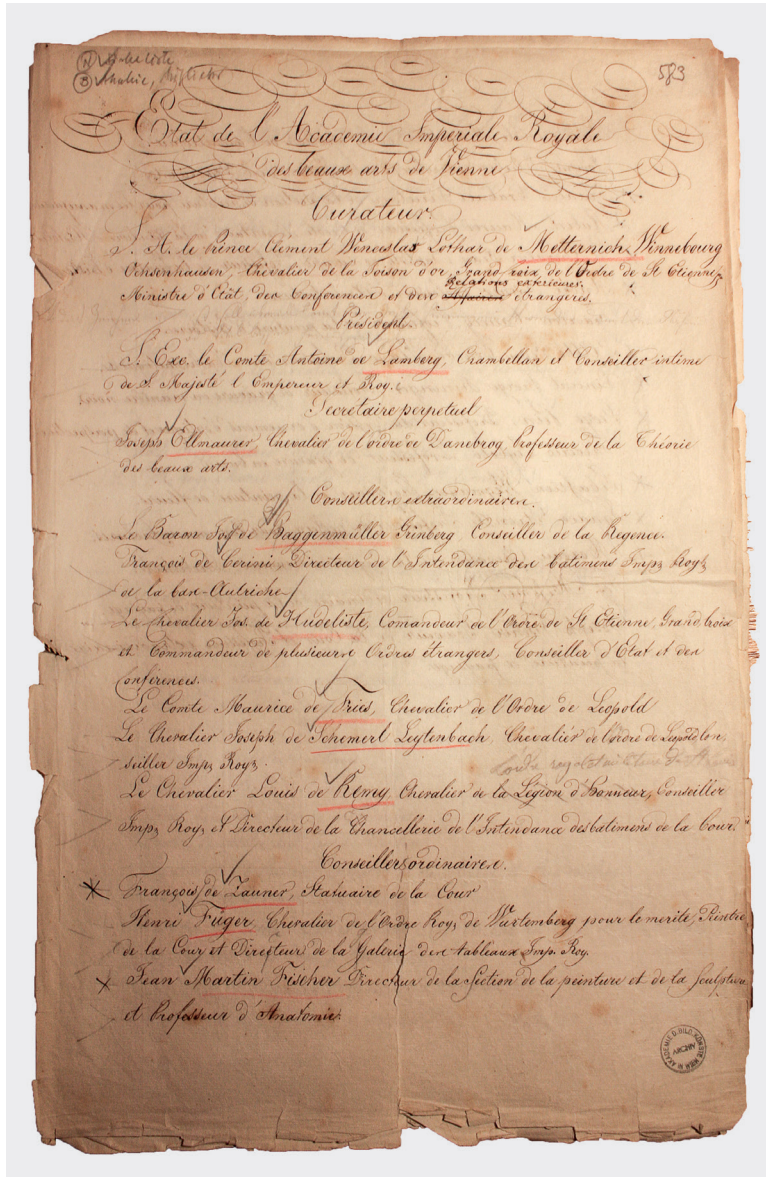 583
Etat de l'Academie Imperiale Royale
des beaux arts de Vienne
Curateur.
S. A. le Prince Clément Wenceslas Lothar de Metternich Winnebourg
Ochsenhausen, Chevalier de la Toison d'or, Grand croix de l'Ordre de St Etienne,
Relations exterieures.
Ministre d'Etat, des Conferences et des Affaires étrangères.
Président.
S. Exc. le Comte Antoine de Lamberg, Chambellan et Conseiller intime
de S. Majesté l'Empereur et Roy.
Secrétaire perpetuel
Joseph Ellmaurer, Chevalier de l'ordre de Danebrog, Professeur de la Théorie
des beaux arts.
Conseillers extraordinaires.
Le Baron Jos. de Haggenmüller Grünberg Conseiller de la Regence.
François de Cerini, Directeur de l'Intendance des batimens Imp. Roy.
de la bas-Autriche
Le Chevalier Jos. de Hudeliste, Comandeur de l'Ordre de St Etienne, Grand croix
et Commandeur de plusieurs Ordres étrangers, Conseiller d'Etat et des
conférences.
Le Comte Maurice de Fries, Chevalier de l'Ordre de Leopold
Le Chevalier Joseph de Schemerl Leytenbach, Chevalier de l'ordre de Leopold, Con-
seiller Imp. Roy.
Le Chevalier Louis de Remy, Chevalier de la Légion d'Honneur, Conseiller
Imp. Roy. et Directeur de la Chancellerie de l'Intendance des batimens de la Cour.
Conseillers ordinaires.
François de Zauner, Statuaire de la Cour
Henri Füger, Chevalier de l'Ordre Roy. de Wurtemberg pour le merite, Peintre
de la Cour et Directeur de la Galerie des tableaux Imp. Roy.
Jean Martin Fischer Directeur de la section de la peinture et de la sculpture
et Professeur d'Anatomie.